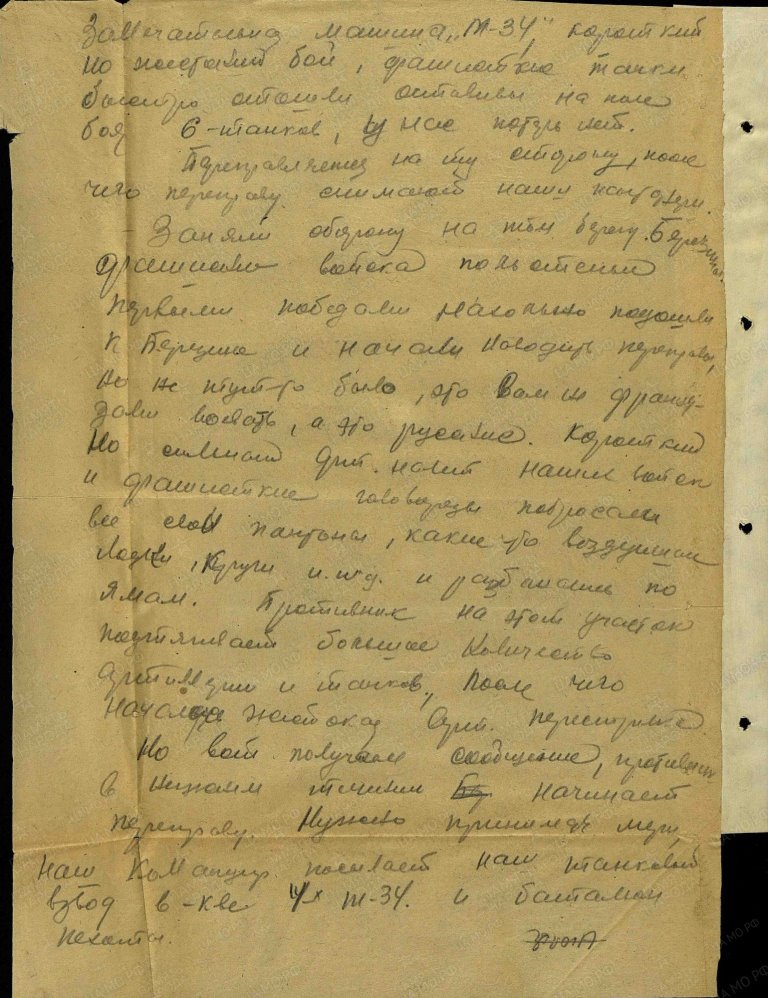 Замечательная машина "Т-34", короткий
но жестокий бой, фашисткие танки
быстро отошли оставивы на поле
боя 6-танков, у нас потерь нет.
Переправляемся на ту сторону, после
чего переправу снимают наши понтонеры.
- Заняли оборону на том берегу Березины.
фашиски войска польотены
первыми победами нахально подошли
к Березине и начали наводить переправы,
но не тут-то было, это вам не францу-
зами воевать, а это русские. Короткий
но сильный арт. налет наших войск
и фашисткие головорезы побросали
все свои пантоны, какие-то воздушные
лодки, круги и.т.д. и разбежались по
ямам. Противник на этом участок
подтягивает большое количество
Артиллерии и танков, после чего
началась жестокая Арт. перестрелка.
Но вот получаем сообщение, противник
в нижнем течении начинает
переправу. Нужно принимать меры,
наш Командир посылает наш танковый
взвод в-кве 4х Т-34. и батальон
пехоты.